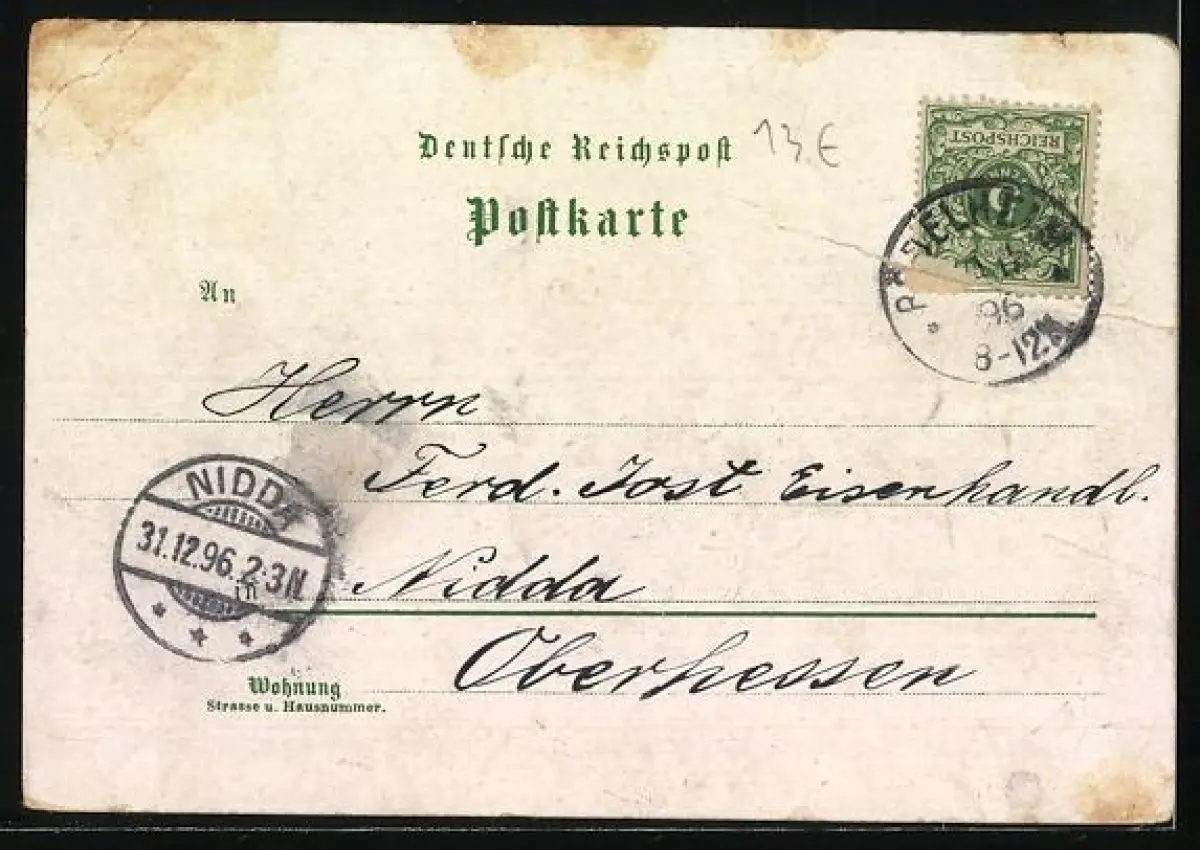 Deutsche Reichspost
13 €
Postkarte
REICHSPOST
5
96
8-12N
An
Herrn
Ferd. Jost Eisenhandl.
NIDDA
31.12.96. 2-3N
in Nidda
Oberhessen
Wohnung
Strasse u. Hausnummer.